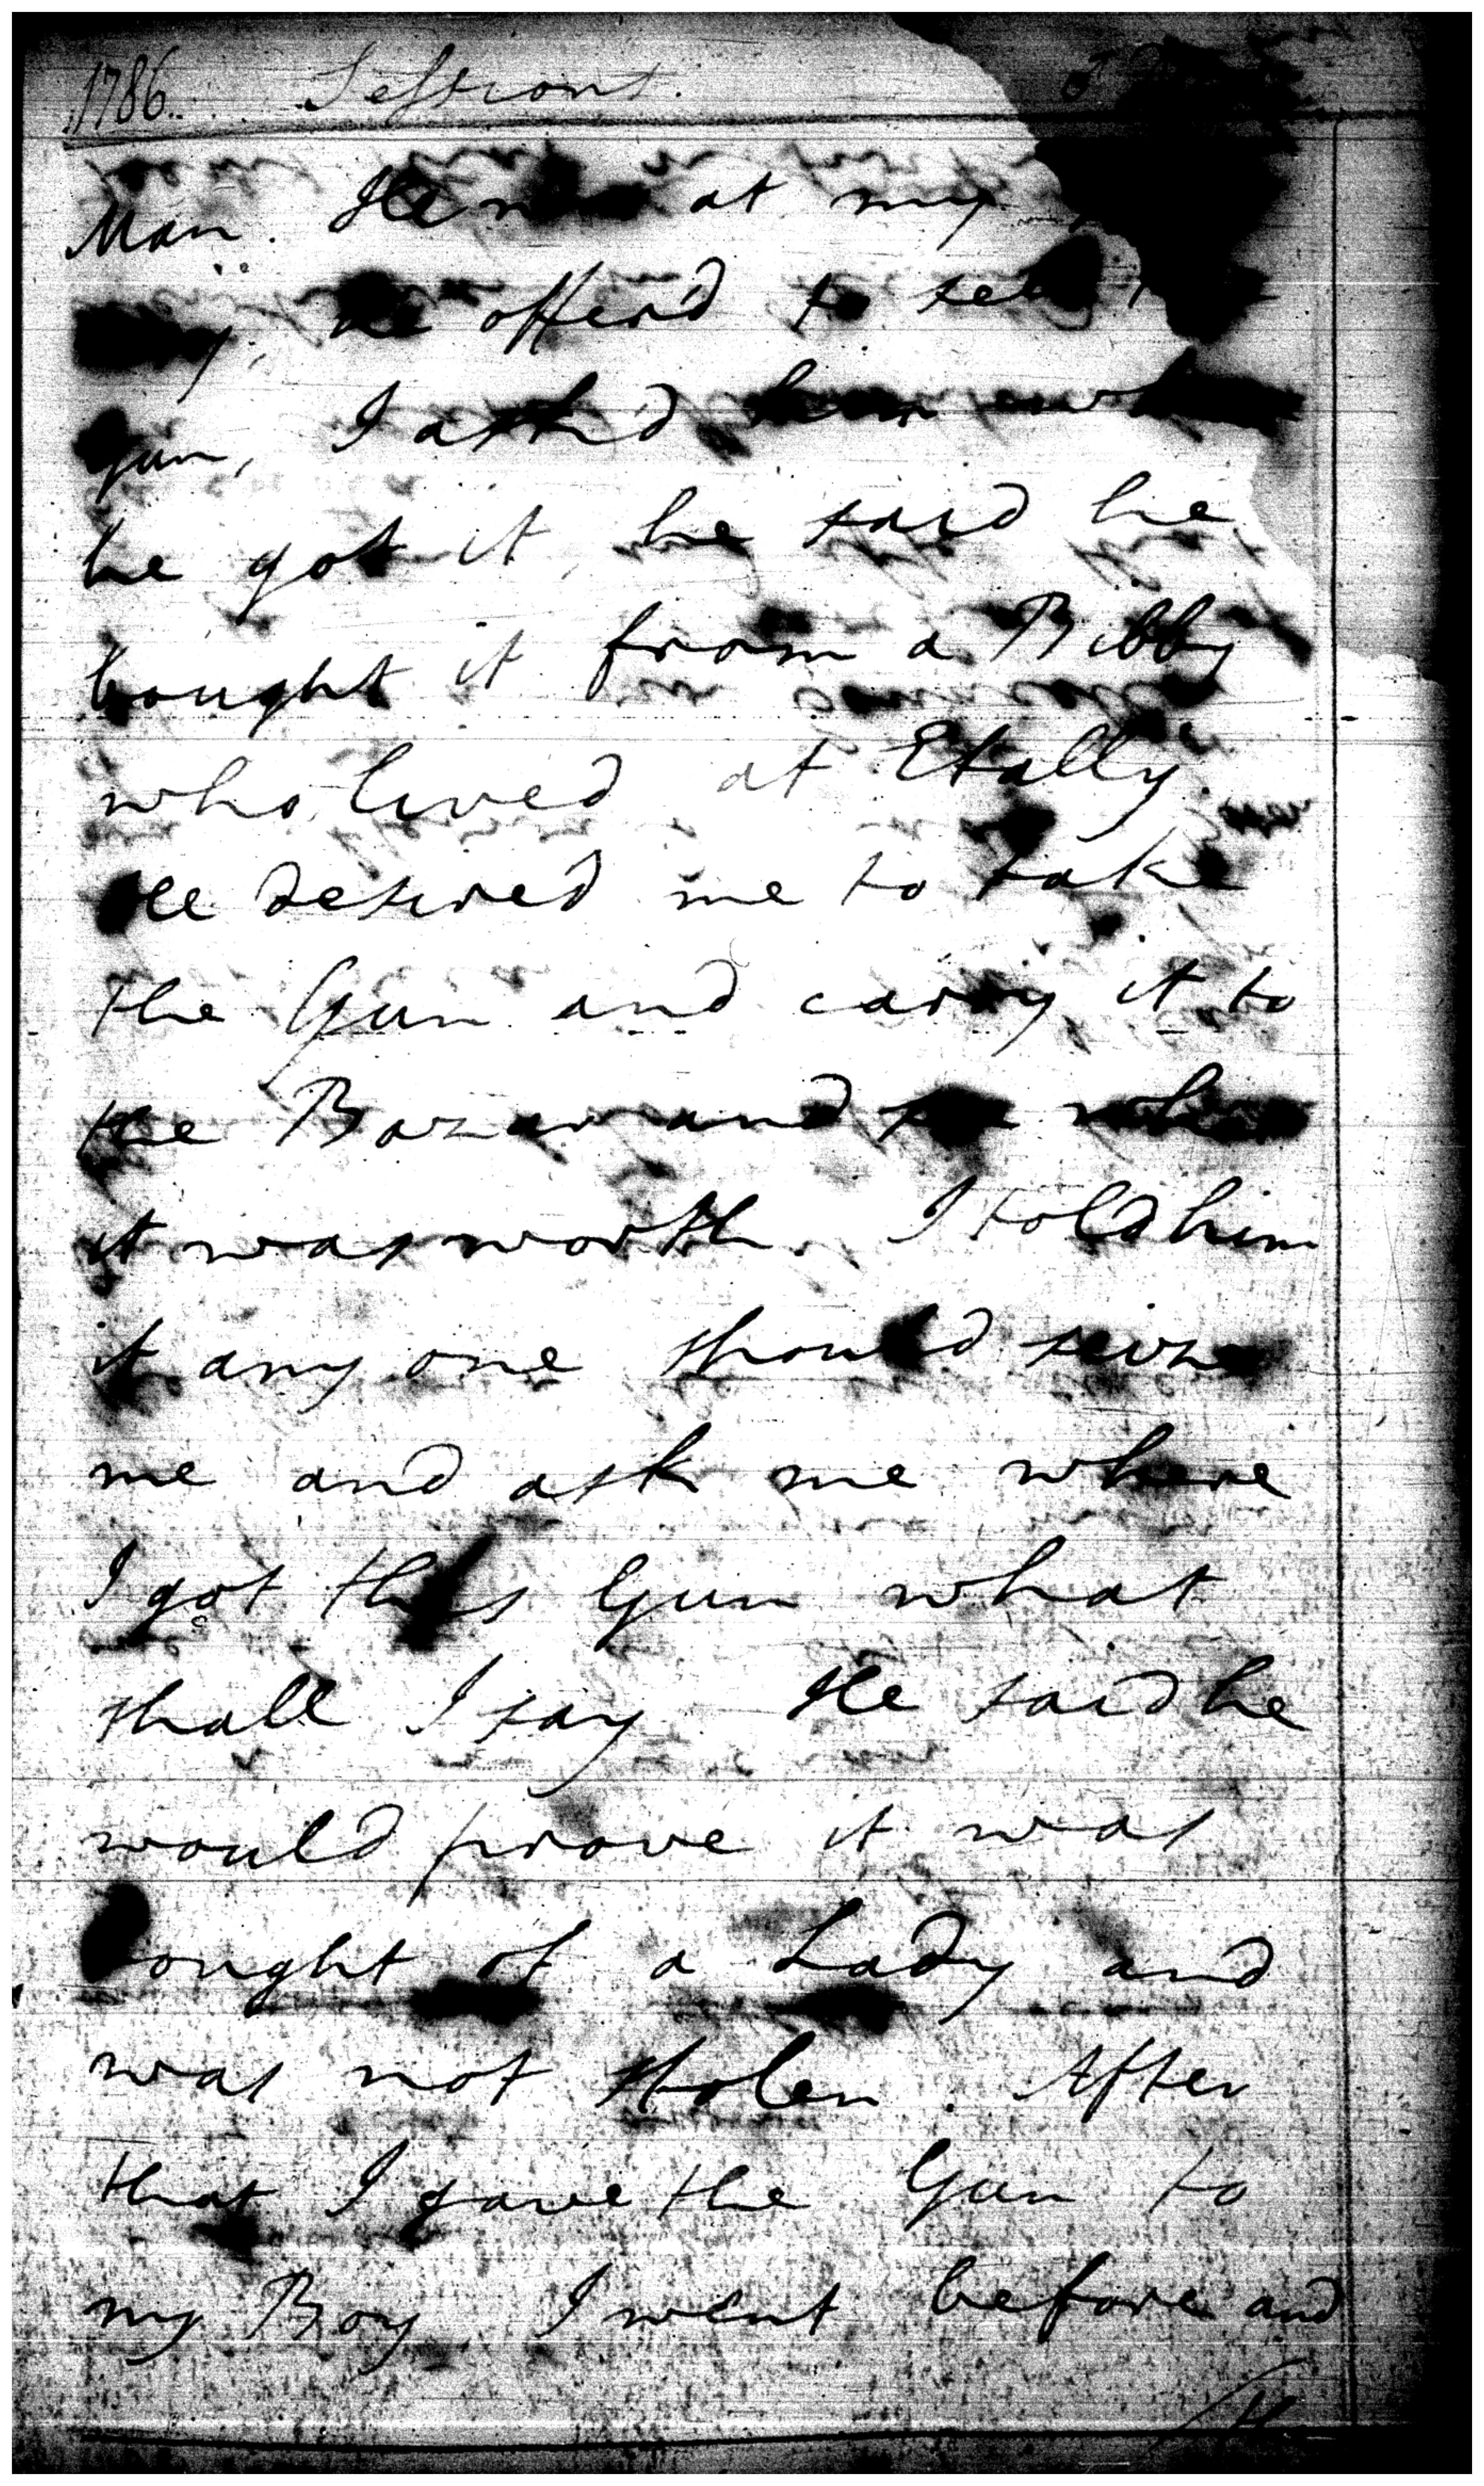 1786. Sessions.
Man. He at my
he offer'd to sell
Gun, I ask'd him
he got it, he said he
bought it from a Bibby
who lived at Etally.
He desired me to take
the Gun and carry it to
the Bazar and see what
it was worth. I told him
if any one should seize
me and ask me where
I got this Gun what
shall I say He said he
would prove it was
bought of a Lady and
was not stolen. After
that I gave the Gun to
my Boy I went before and